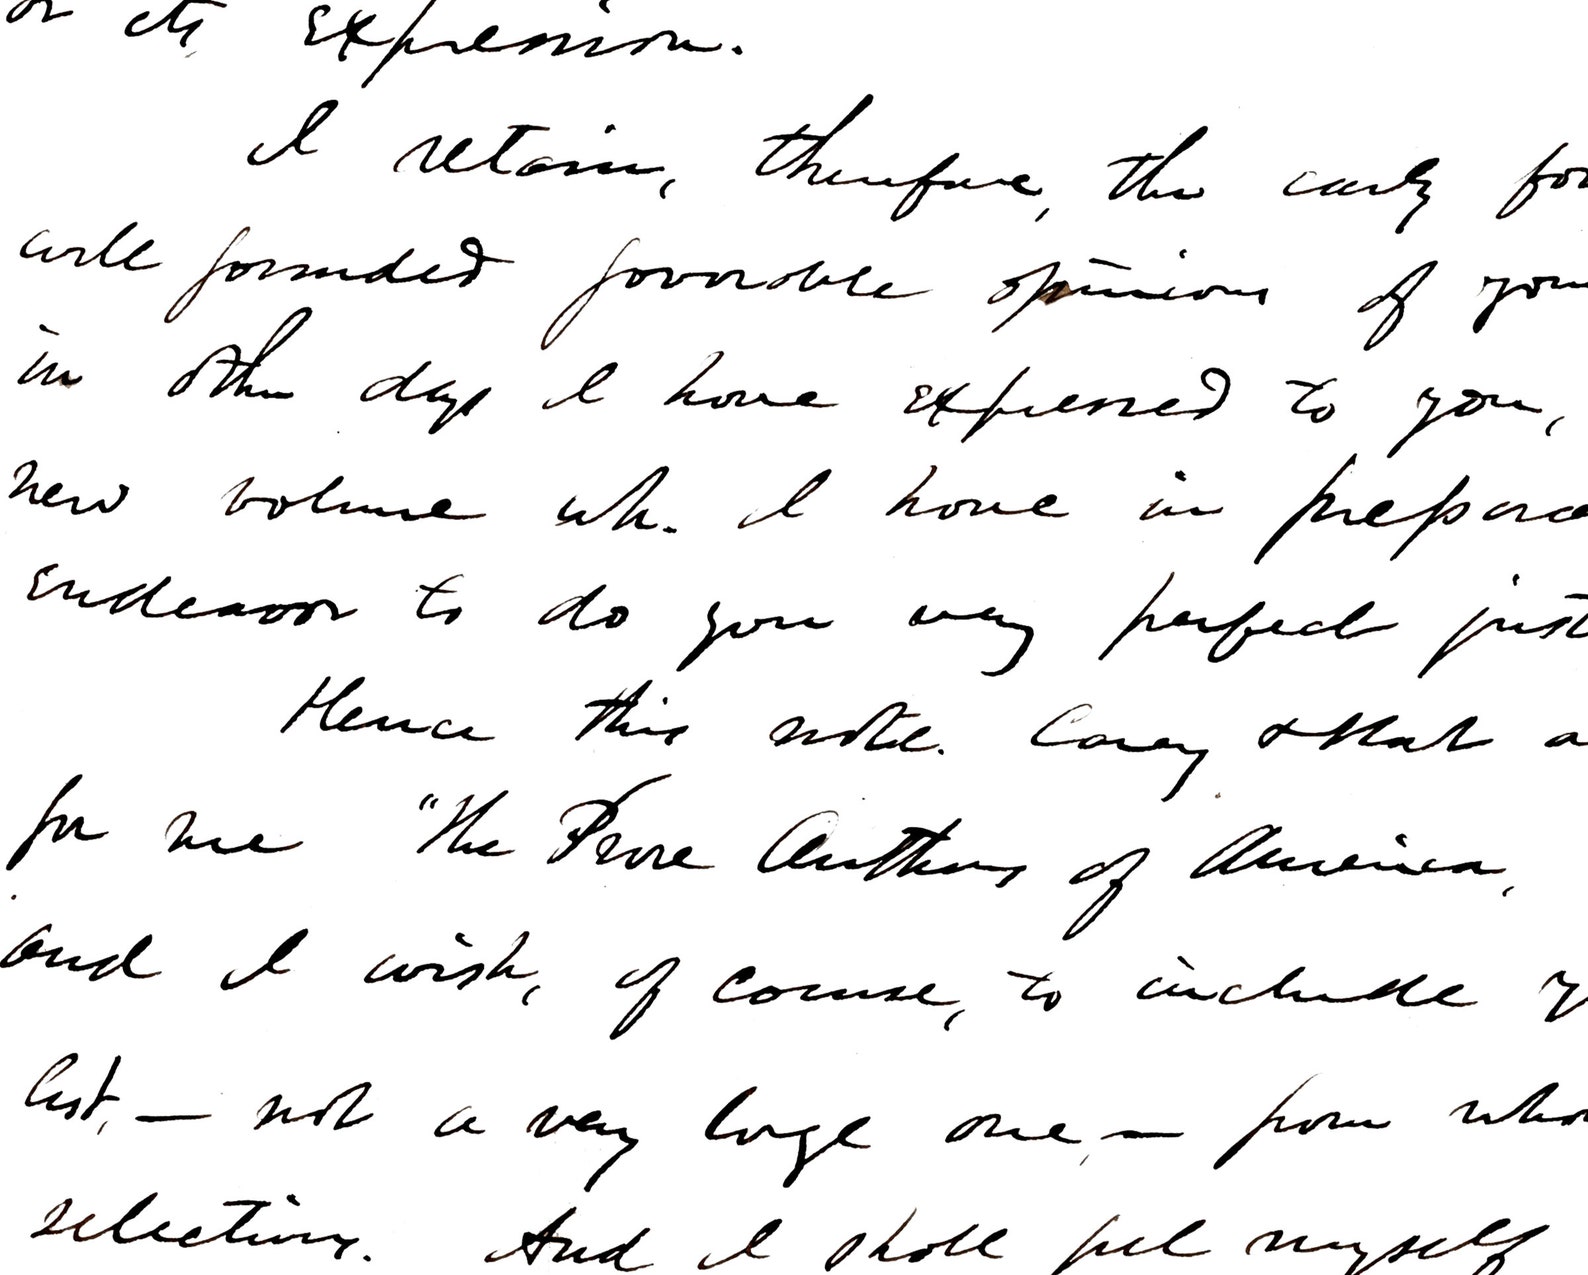 or its expression.
I retain, therefore, the early for
well founded favorable opinions of your
in other days I have expressed to you,
new volume wh. I have in prepara
endeavor to do you very perfect just
Hence this note. Carey & Hart a
for me "The Prose Authors of America,
and I wish, of course, to include y
list, — not a very large one, — from whom
selections. And I shall feel myself